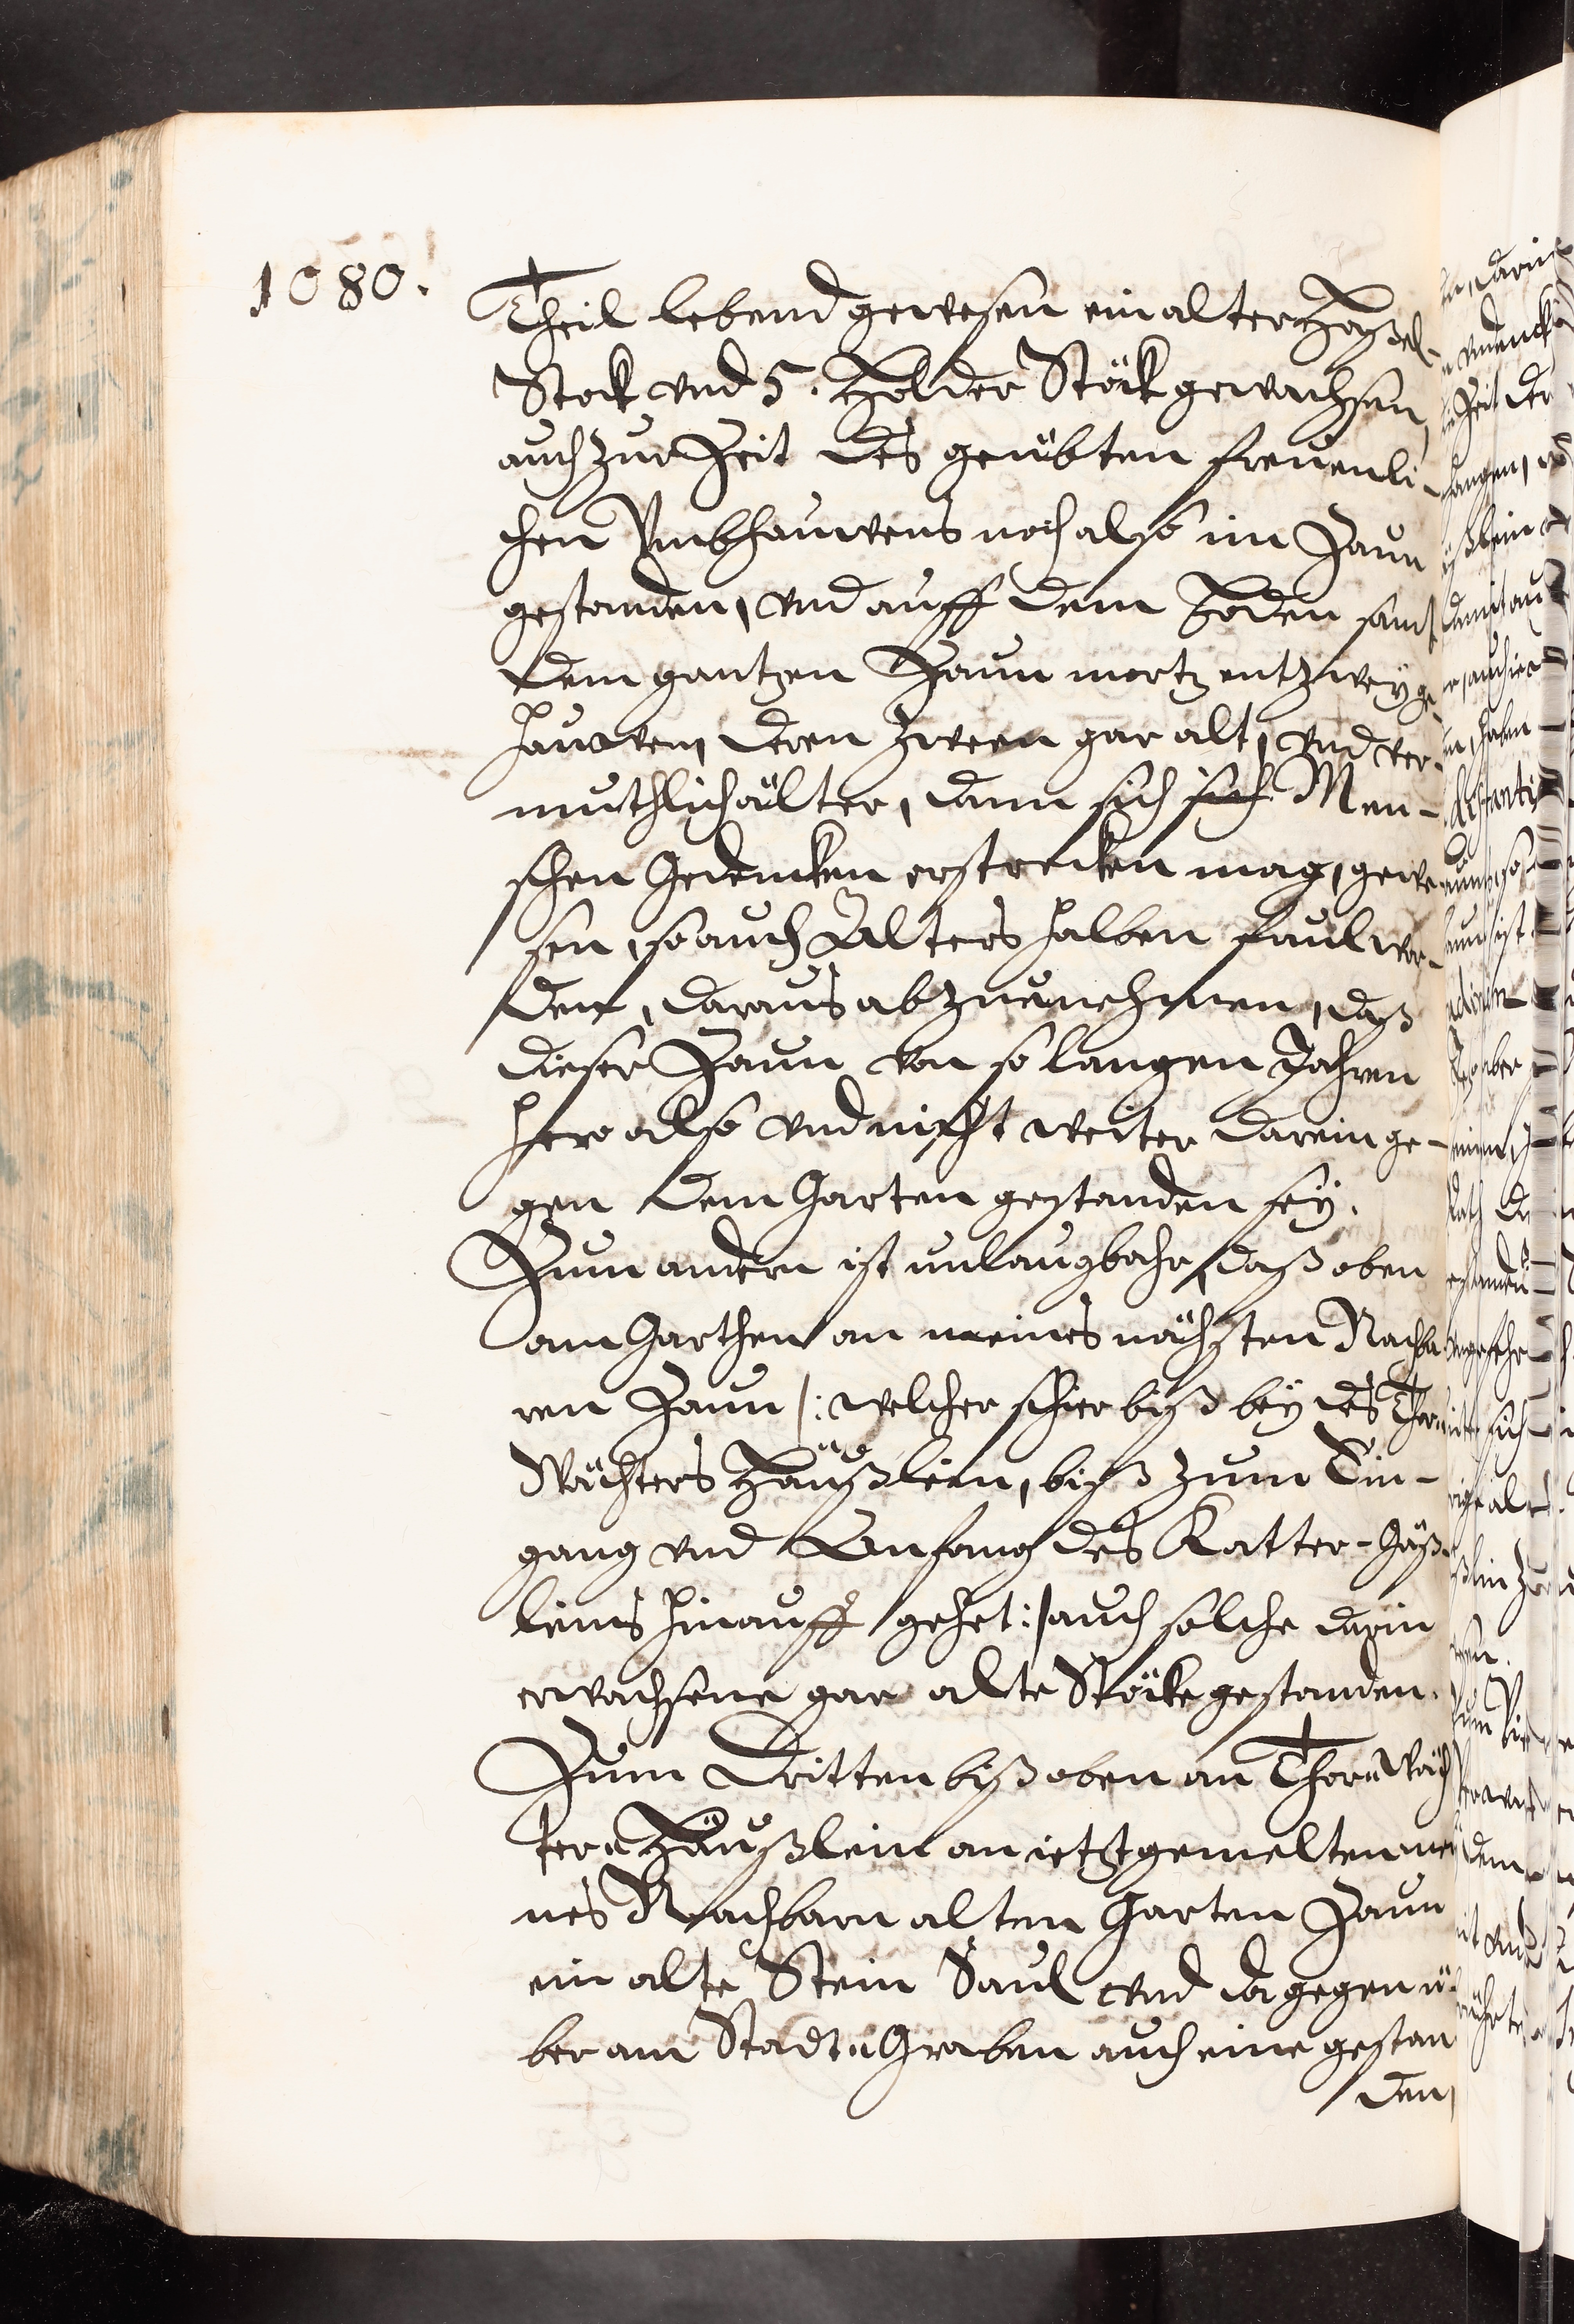 1080.
Theil lebend gewesen ein alter Haßel-
Stock vnd 5. Holder Stöck gewachsen,
auch zur Zeit des geübten freuenli-
chen Vmbhauwens noch also im Zaun
gestanden, vnd auff dem Boden samt
dem gantzen Zaun mortz entzwey ge-
hauwen, deren zween gar alt, vnd ver-
muthlich älter, dann sich Men-
schen Gedencken erstrecken mag, gewe-
sen, so auch Alters halben faul wor-
den, daraus abzunehmen, daß
dieser Zaun von so langen Jahren
hero also vnd nicht weiter darein ge-
gen dem Garten gestanden sey.
Zum andern ist unlaugbahr, daß oben
am Garthen an meines nächsten Nachba
ren Zaun /: welcher schier biß bey des Thor
Wächters Häußlein, biß zum Ein-
gang vnd Anfang des Katter-Gäß-
leins hinauff gehet :/ auch solche darin
erwachsene gar alte Stöcke gestanden.
Zum Dritten biß oben an Thor-Wäch
ters Häußlein an ietztgemelten mei
nes Nachbarn alten Garten Zaun
ein alte Stein Säul vnd dagegen ü-
ber am Stadt-Graben auch eine gestan
den,